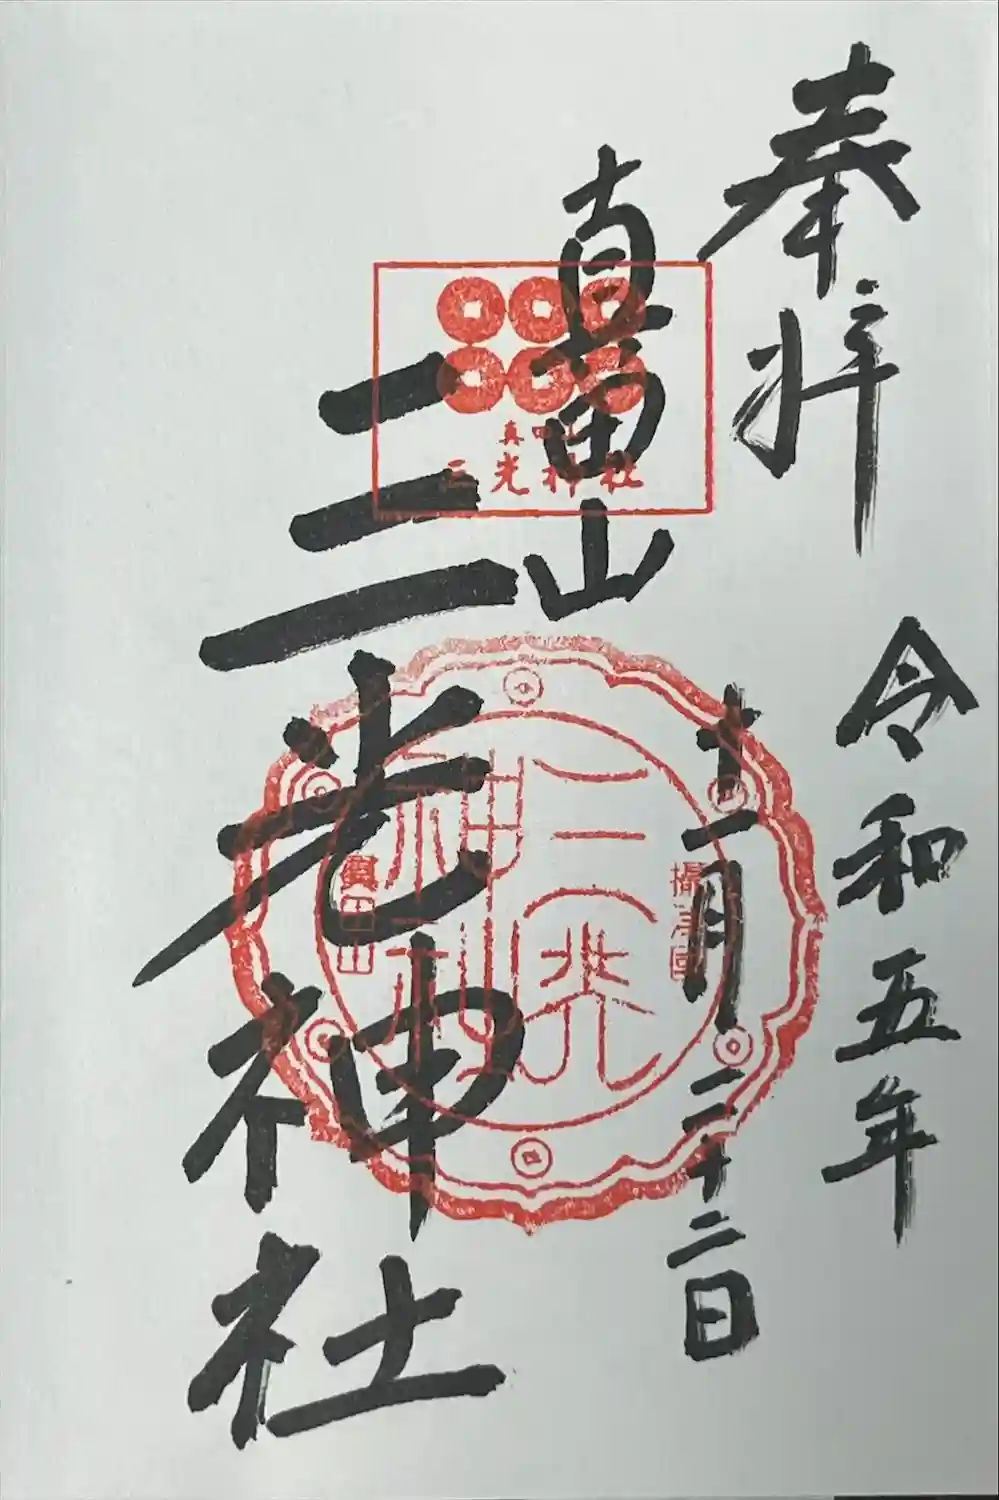 奉拝
令和五年
十二月二十二日
真田山
三光神社
真田山
三光神社
三光
神社
眞田山